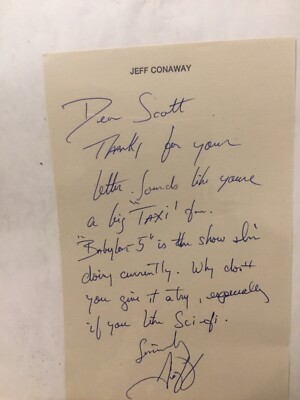 JEFF CONAWAY
Dear Scott
Thanks for your
letter. Sounds like you're
a big "TAXI" fan.
"Babylon 5" is the show I'm
doing currently. Why don't
you give it a try, especially
if you like Sci-fi.
Sincerely
Jeff